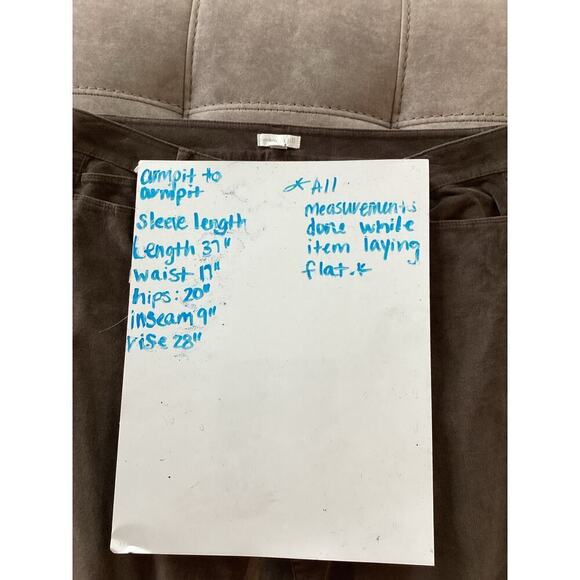 armpit to
armpit
Sleeve length
Length 37"
waist 17"
hips: 20"
inseam 9"
rise 28"
*All
measurements
done while
item laying
flat.*